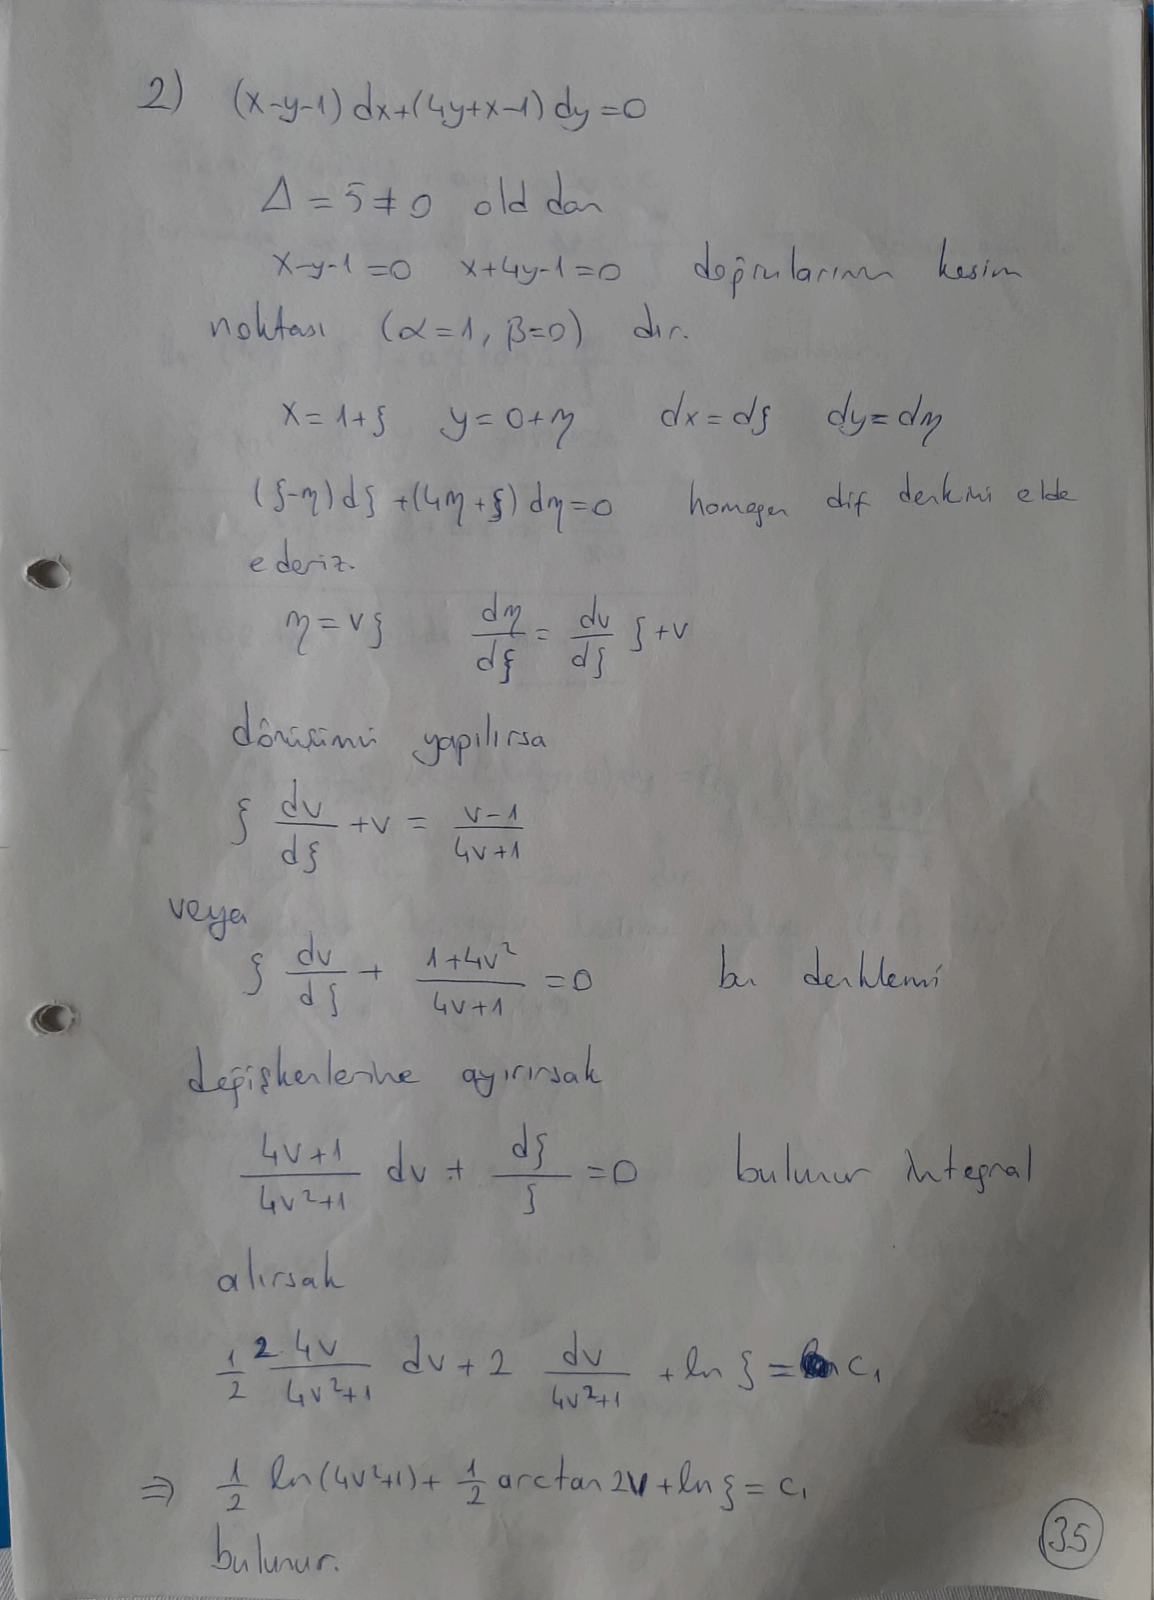 2) (x-y-1) dx+(4y+x-1) dy=0
Δ = 5 ≠ 0 old dan
x-y-1=0 x+4y-1=0 doğrularının kesim
noktası (α=1, β=0) dır.
x=1+ξ y=0+η dx=dξ dy=dη
(ξ-η)dξ+(4η+ξ)dη=0 homogen dif denkmi elde
ederiz.
η=vξ dη/dξ = dv/dξ ξ+v
dönüşümü yapılırsa
ξ dv/dξ +v = v-1/4v+1
veya
ξ dv/dξ + 1+4v²/4v+1 =0 bu denklemi
değişkenlerine ayırırsak
4v+1/4v²+1 dv + dξ/ξ =0 bulunur integral
alırsak
1/2 2 4v/4v²+1 dv+2 dv/4v²+1 +ln ξ = c₁
⇒ 1/2 ln(4v²+1)+ 1/2 arctan 2v+ln ξ = c₁
bulunur.
35